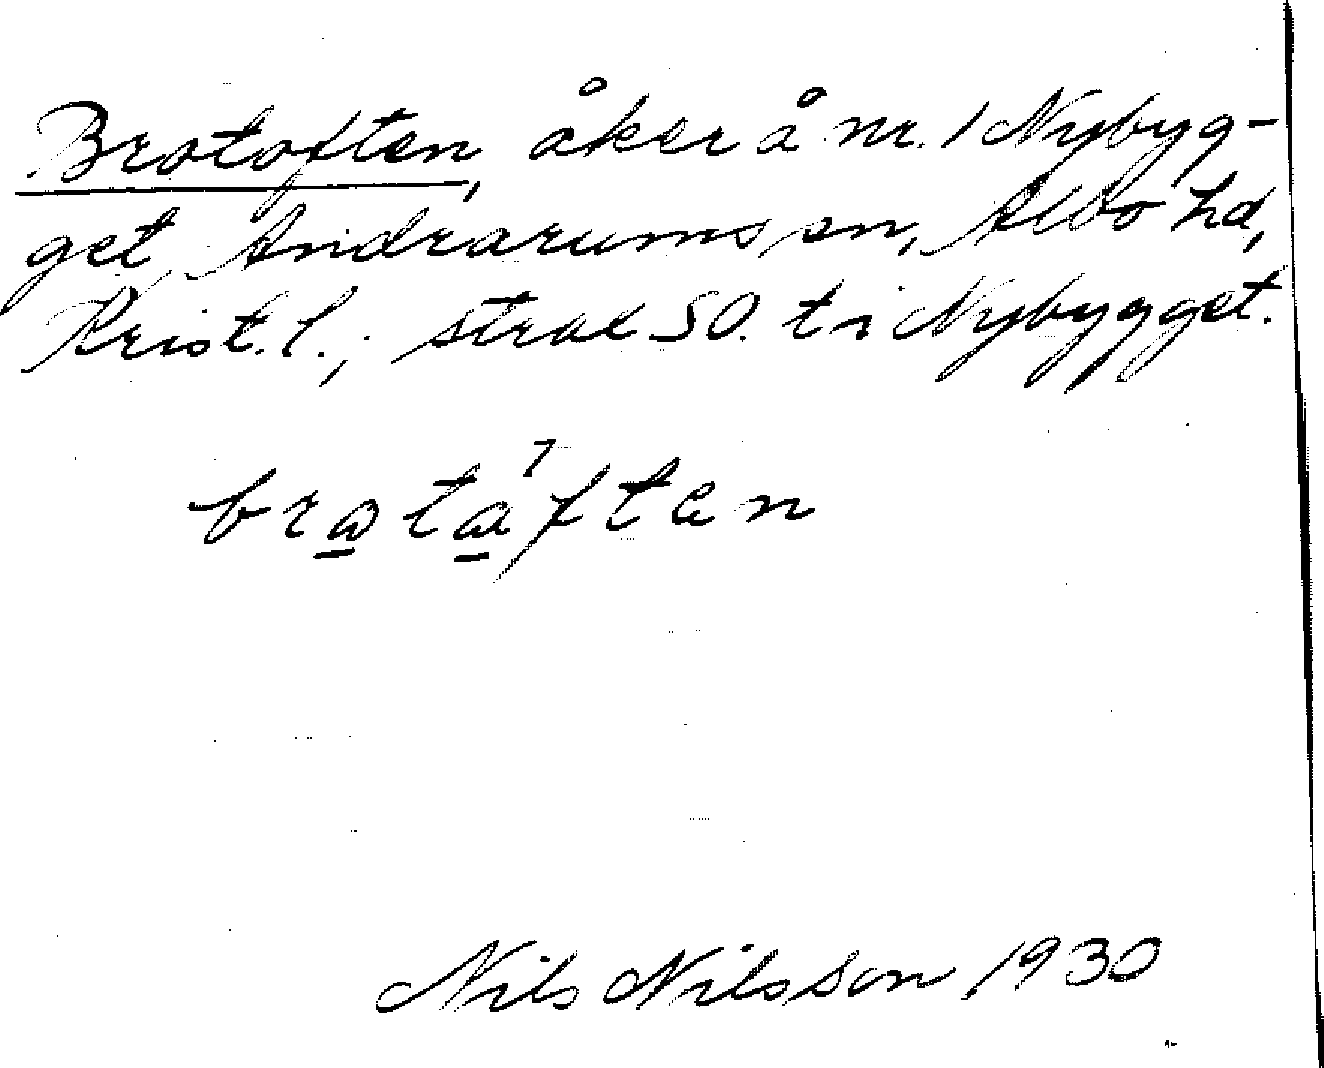 Brotoften, åker å nr. 1 Nybyg-
get, Andrarums sn, Albo hd,
Krist. l.; strax SO. t i Nybygget.
brωtω⁷ften
Nils Nilsson 1930